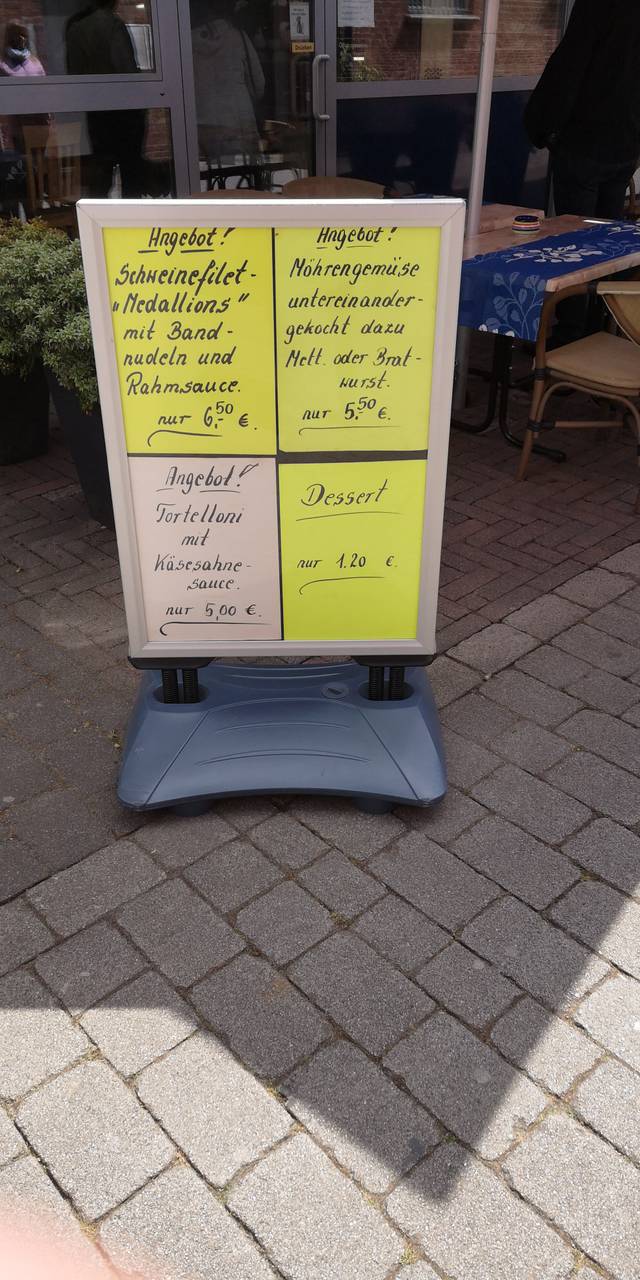 Angebot!
Schweinefilet-
"Medallions"
mit Band-
nudeln und
Rahmsauce.
nur 6,50 €.
Angebot!
Möhrengemüse
untereinander-
gekocht dazu
Mett. oder Brat-
wurst.
nur 5,50 €.
Angebot!
Tortelloni
mit
Käsesahne-
sauce.
nur 5,00 €.
Dessert
nur 1.20 €.
Drücken